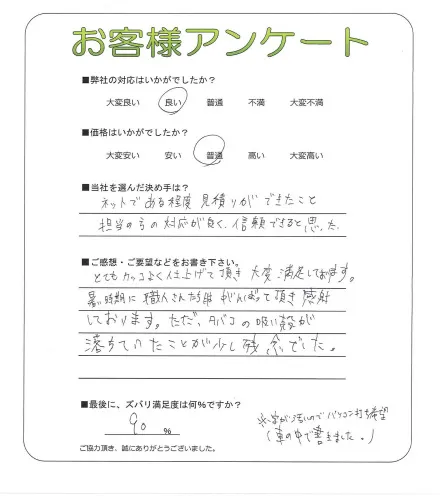 お客様アンケート
■弊社の対応はいかがでしたか?
大変良い 良い 普通 不満 大変不満
■価格はいかがでしたか?
大変安い 安い 普通 高い 大変高い
■当社を選んだ決め手は?
ネットである程度見積りができたこと
担当の方の対応が良く、信頼できると思った.
■ご感想・ご要望などをお書き下さい。
とてもカッコよく仕上げて頂き大変満足しております。
暑い時期に職人さんたちは がんばって頂き感謝
しております。ただ、タバコの吸い殻が
落ちていたことが少し残念でした。
■最後に、ズバリ満足度は何%ですか?
90 %
※字が汚いのでパソコン打ち希望
(車の中で書きました。)
ご協力頂き、誠にありがとうございました。